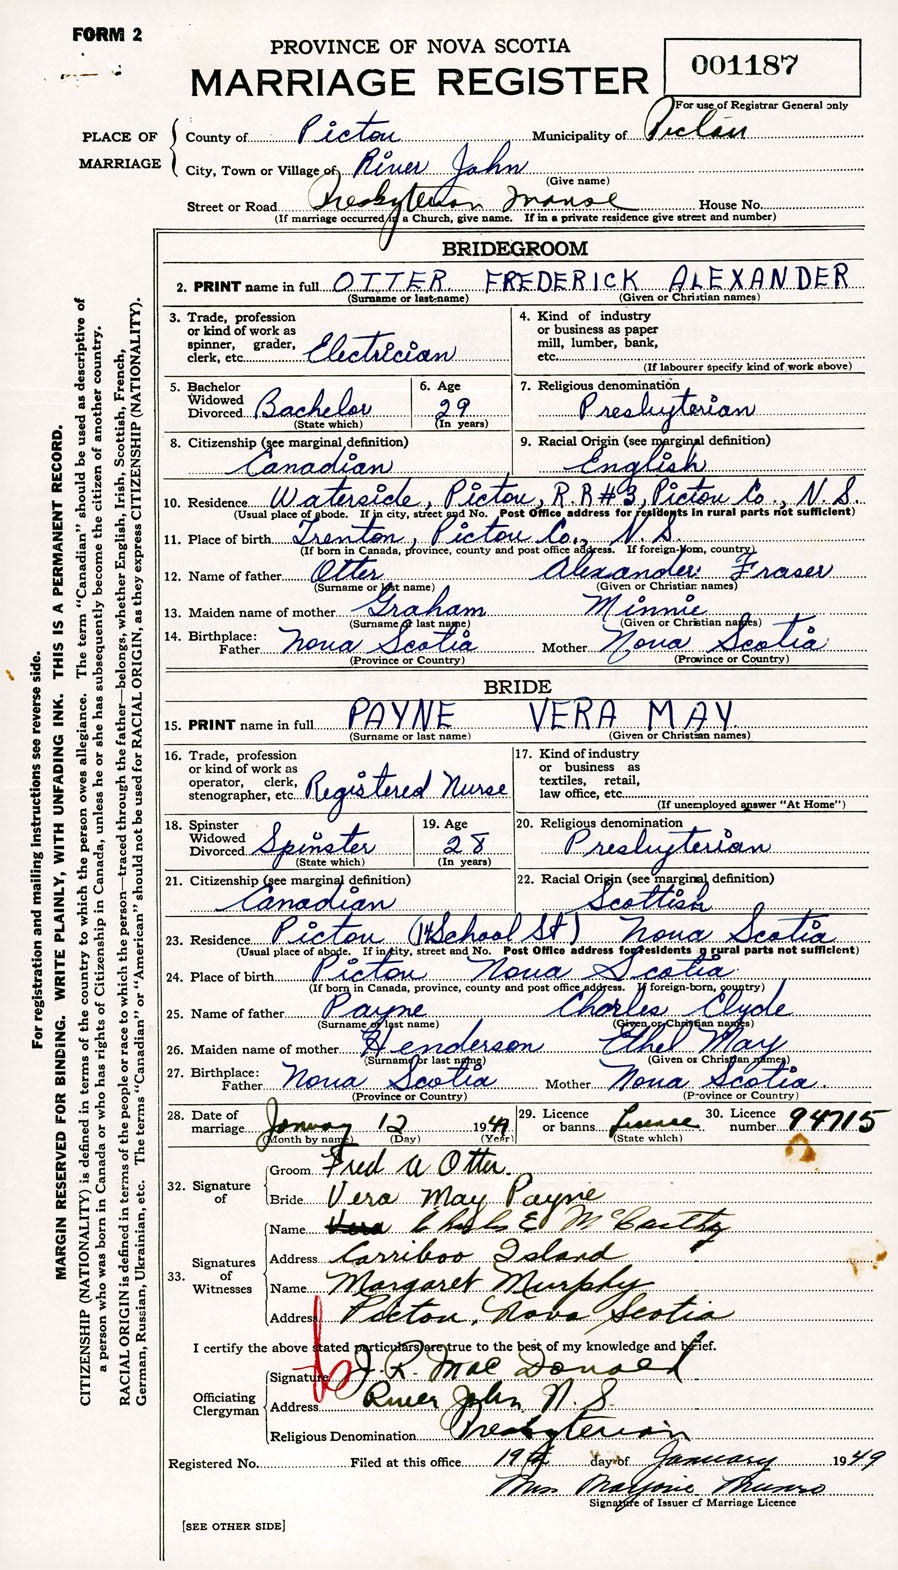 FORM 2
PROVINCE OF NOVA SCOTIA
MARRIAGE REGISTER
001187
For use of Registrar General only
PLACE OF MARRIAGE
County of Pictou Municipality of Pictou
City, Town or Village of River John
(Give name)
Street or Road Presbyterian Manse House No.
(If marriage occurred in a Church, give name. If in a private residence give street and number)
BRIDEGROOM
2. PRINT name in full OTTER FREDERICK ALEXANDER
(Surname or last name) (Given or Christian names)
3. Trade, profession or kind of work as spinner, grader, clerk, etc. Electrician
4. Kind of industry or business as paper mill, lumber, bank, etc.
(If labourer specify kind of work above)
5. Bachelor Widowed Divorced Bachelor
(State which)
6. Age 29
(In years)
7. Religious denomination
Presbyterian
8. Citizenship (see marginal definition)
Canadian
9. Racial Origin (see marginal definition)
English
10. Residence Waterside, Pictou, R.R #3, Pictou Co., N.S.
(Usual place of abode. If in city, street and No. Post Office address for residents in rural parts not sufficient)
11. Place of birth Trenton, Pictou Co., N.S.
(If born in Canada, province, county and post office address. If foreign-born, country)
12. Name of father Otter Alexander Fraser
(Surname or last name) (Given or Christian names)
13. Maiden name of mother Graham Minnie
(Surname or last name) (Given or Christian names)
14. Birthplace: Father Nova Scotia Mother Nova Scotia
(Province or Country) (Province or Country)
BRIDE
15. PRINT name in full PAYNE VERA MAY
(Surname or last name) (Given or Christian names)
16. Trade, profession or kind of work as operator, clerk, stenographer, etc. Registered Nurse
17. Kind of industry or business as textiles, retail, law office, etc.
(If unemployed answer "At Home")
18. Spinster Widowed Divorced Spinster
(State which)
19. Age 28
(In years)
20. Religious denomination
Presbyterian
21. Citizenship (see marginal definition)
Canadian
22. Racial Origin (see marginal definition)
Scottish
23. Residence Pictou (14 School St) Nova Scotia
(Usual place of abode. If in city, street and No. Post Office address for residents in rural parts not sufficient)
24. Place of birth Pictou Nova Scotia
(If born in Canada, province, county and post office address. If foreign-born, country)
25. Name of father Payne Charles Clyde
(Surname or last name) (Given or Christian names)
26. Maiden name of mother Henderson Ethel May
(Surname or last name) (Given or Christian names)
27. Birthplace: Father Nova Scotia Mother Nova Scotia.
(Province or Country) (Province or Country)
28. Date of marriage January 12 1949
(Month by name) (Day) (Year)
29. Licence or banns License
(State which)
30. Licence number 94715
32. Signature of
Groom Fred A Otter.
Bride Vera May Payne
33. Signatures of Witnesses
Name Vera Charles E McCarthy
Address Carriboo Island
Name Margaret Murphy
Address Pictou, Nova Scotia
I certify the above stated particulars are true to the best of my knowledge and belief.
Officiating Clergyman
Signature J. R. MacDonald
Address River John N.S.
Religious Denomination Presbyterian
Registered No. Filed at this office 19th day of January 1949
Mrs Marjorie Munro
Signature of Issuer of Marriage Licence
[SEE OTHER SIDE]
For registration and mailing instructions see reverse side.
MARGIN RESERVED FOR BINDING. WRITE PLAINLY, WITH UNFADING INK. THIS IS A PERMANENT RECORD.
CITIZENSHIP (NATIONALITY) is defined in terms of the country to which the person owes allegiance. The term "Canadian" should be used as descriptive of
a person who was born in Canada or who has rights of Citizenship in Canada, unless he or she has subsequently become the citizen of another country.
RACIAL ORIGIN is defined in terms of the people or race to which the person—traced through the father—belongs, whether English, Irish, Scottish, French,
German, Russian, Ukrainian, etc. The terms "Canadian" or "American" should not be used for RACIAL ORIGIN, as they express CITIZENSHIP (NATIONALITY).